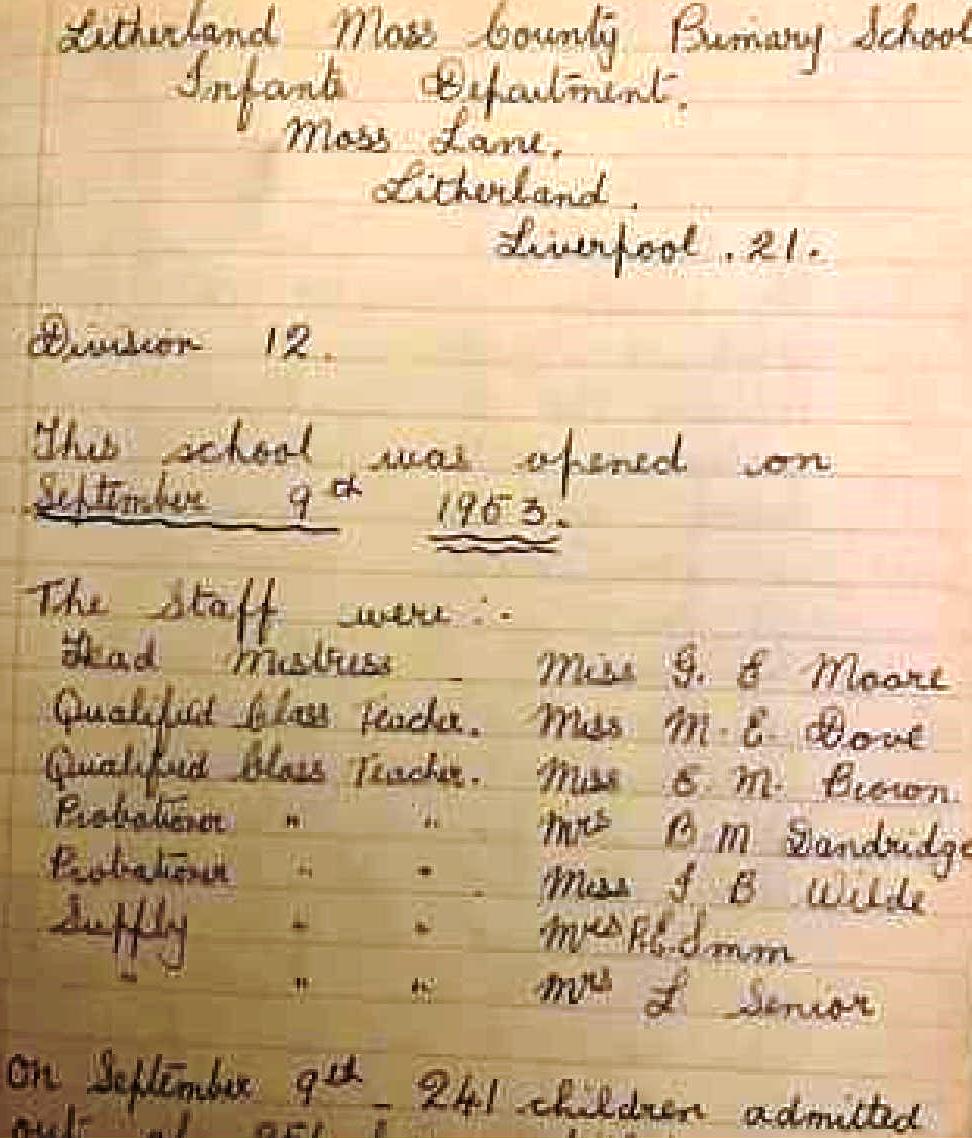 Litherland Moss County Primary School
Infants Department.
Moss Lane,
Litherland.
Liverpool. 21.
Division 12.
This school was opened on
September 9th 1953.
The Staff were :-
Head Mistress Miss G. E Moore
Qualified Class Teacher. Miss M. E. Dove
Qualified Class Teacher. Miss E. M. Brown
Probationer " " Mrs B M Dandridge
Probationer " " Miss J B Wilde
Supply " " Mrs
" " " Mrs L Senior
On September 9th _ 241 children admitted
out of